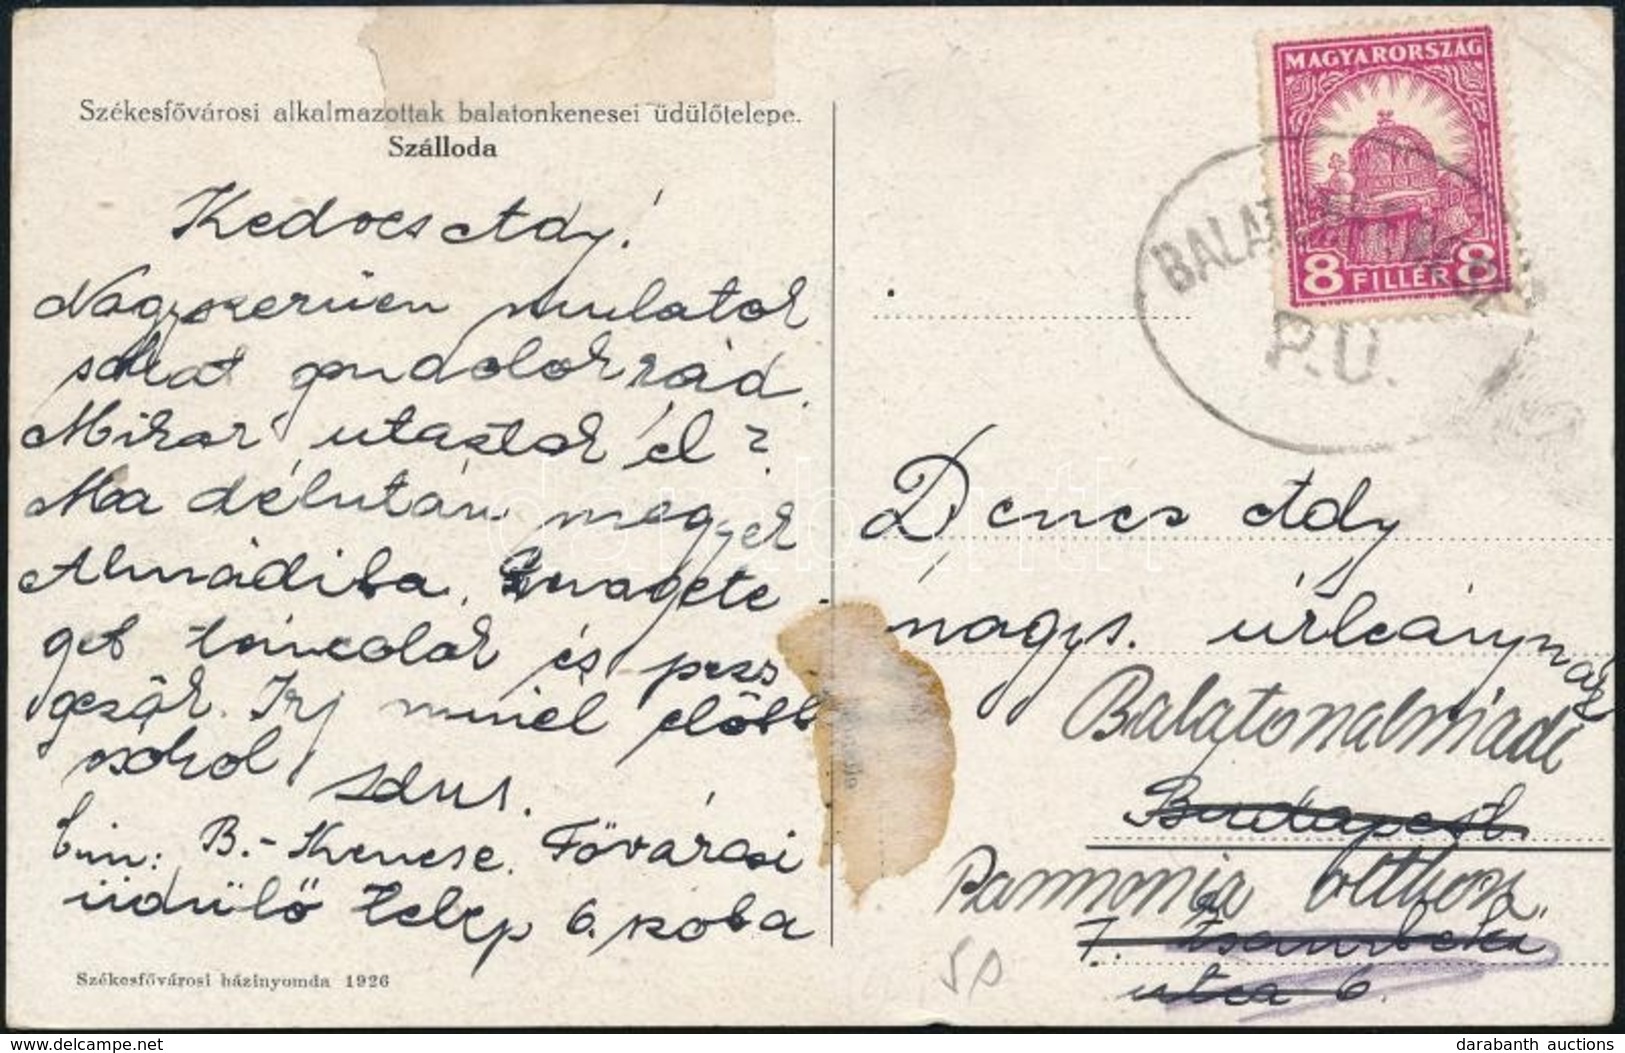 Székesfővárosi alkalmazottak balatonkenesei üdülőtelepe.
Szálloda
Kedves Ady!
Nagyszerüen mulatok
sokat gondolok rád.
Mikor utaztok el?
Ma délután megyek
Almádiba.
get táncolok és pezs
gezök. Irj minél előbb
sokat
cim: B.-Kenese. Fővárosi
üdülő telep 6. szoba
Székesfővárosi házinyomda 1926
MAGYARORSZÁG
8 FILLÉR 8
P.U.
Denes Ady
nagys. úrleánynak
Balatonalmádi
Budapest
Pannonia otthon
7.
utca 6.
50
darabanth
delcampe.net
darabanth auctions